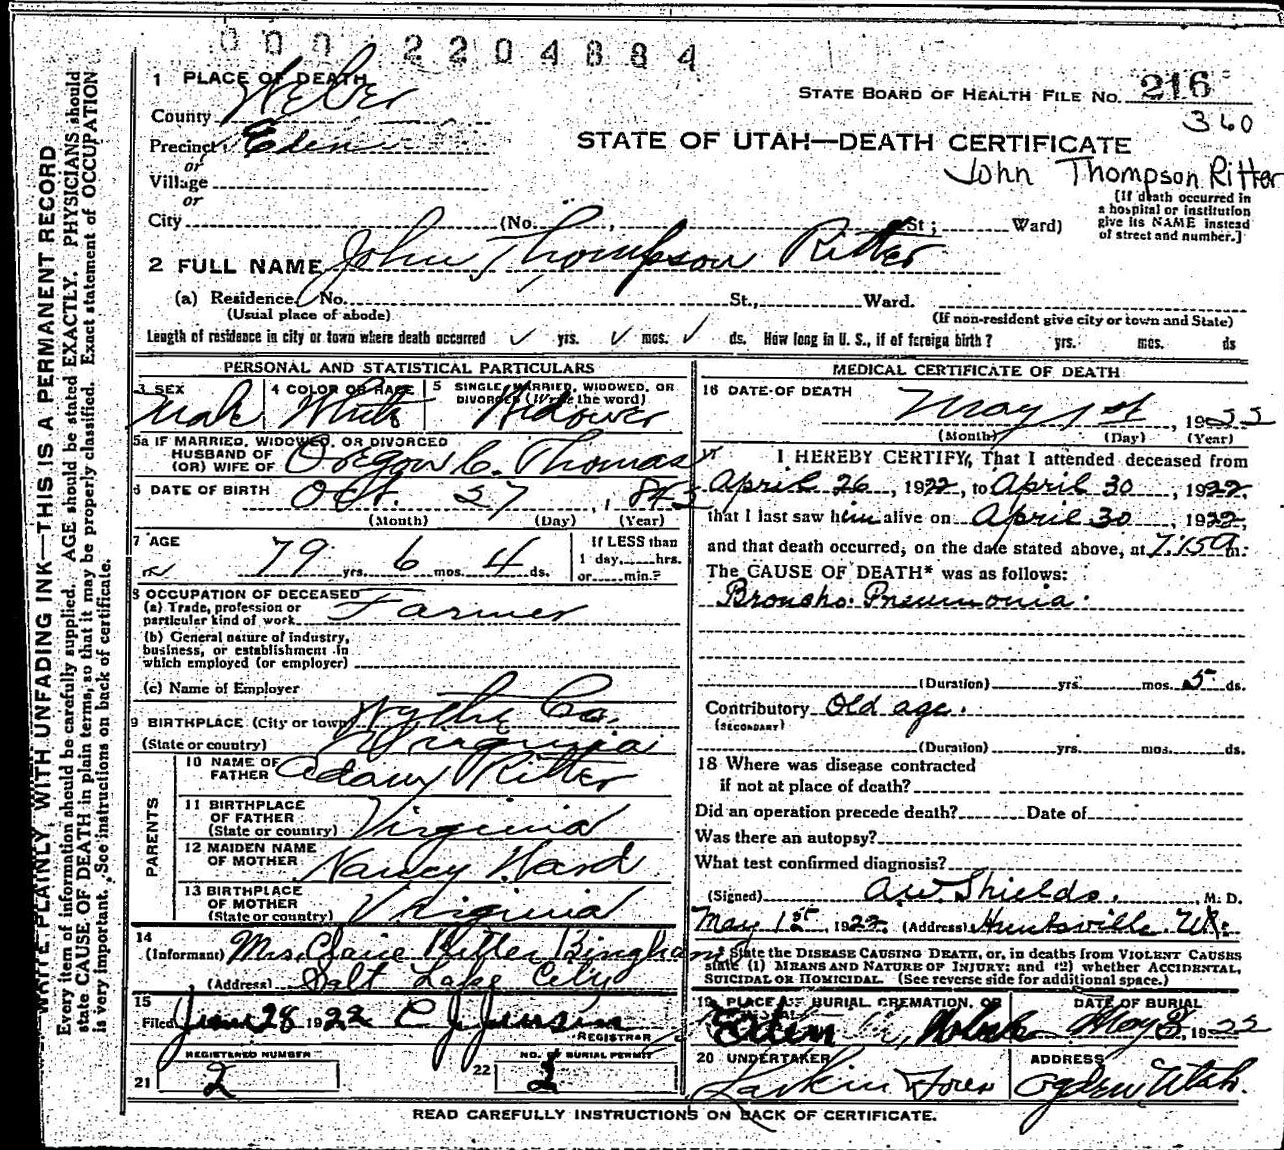 000 2204884
1 PLACE OF DEATH
County Weber
STATE BOARD OF HEALTH FILE NO. 216
360
Precinct Eden
STATE OF UTAH—DEATH CERTIFICATE
or
John Thompson Ritter
Village
or
[If death occurred in
a hospital or institution
give its NAME instead
of street and number.]
City (No. St; Ward)
2 FULL NAME John Thompson Ritter
(a) Residence No. St., Ward.
(Usual place of abode) (If non-resident give city or town and State)
Length of residence in city or town where death occurred yrs. mos. ds. How long in U. S., if of foreign birth? yrs. mos. ds
PERSONAL AND STATISTICAL PARTICULARS
3 SEX Male
4 COLOR OR RACE White
5 SINGLE, MARRIED, WIDOWED, OR
DIVORCED (Write the word) Widower
5a IF MARRIED, WIDOWED, OR DIVORCED
HUSBAND OF
(OR) WIFE OF Oregon C. Thomas
6 DATE OF BIRTH Oct. 27, 1843
(Month) (Day) (Year)
7 AGE 79 yrs. 6 mos. 4 ds.
If LESS than
1 day, hrs.
or min.?
8 OCCUPATION OF DECEASED
(a) Trade, profession or
particular kind of work Farmer
(b) General nature of industry,
business, or establishment in
which employed (or employer)
(c) Name of Employer
9 BIRTHPLACE (City or town) Wythe Co.
(State or country) Virginia
PARENTS
10 NAME OF
FATHER Adam Ritter
11 BIRTHPLACE
OF FATHER
(State or country) Virginia
12 MAIDEN NAME
OF MOTHER Nancy Hard
13 BIRTHPLACE
OF MOTHER
(State or country) Virginia
14
(Informant) Mrs. Claire Ritter Bingham
(Address) Salt Lake City
15
Filed June 28 1922 C J Jensen
REGISTRAR
REGISTERED NUMBER
21 2
NO. OF BURIAL PERMIT
22 2
MEDICAL CERTIFICATE OF DEATH
16 DATE OF DEATH May 1st, 1922
(Month) (Day) (Year)
17 I HEREBY CERTIFY, That I attended deceased from
April 26, 1922, to April 30, 1922,
that I last saw him alive on April 30, 1922,
and that death occurred, on the date stated above, at 7.15 a m.
The CAUSE OF DEATH* was as follows:
Broncho. Pneumonia.
(Duration) yrs. mos. 5 ds.
Contributory Old age.
(SECONDARY)
(Duration) yrs. mos. ds.
18 Where was disease contracted
if not at place of death?
Did an operation precede death? Date of
Was there an autopsy?
What test confirmed diagnosis?
(Signed) A.W. Shields. M. D.
May 1st 1922. (Address) Huntsville. Ut.
* State the DISEASE CAUSING DEATH, or, in deaths from VIOLENT CAUSES
state (1) MEANS AND NATURE OF INJURY: and (2) whether ACCIDENTAL,
SUICIDAL OR HOMICIDAL. (See reverse side for additional space.)
19 PLACE OF BURIAL, CREMATION, OR
REMOVAL Eden
DATE OF BURIAL
May 3, 1922
20 UNDERTAKER
Larkin & Sons
ADDRESS
Ogden Utah.
READ CAREFULLY INSTRUCTIONS ON BACK OF CERTIFICATE.
WRITE PLAINLY, WITH UNFADING INK—THIS IS A PERMANENT RECORD
Every item of information should be carefully supplied. AGE should be stated EXACTLY. PHYSICIANS should
state CAUSE OF DEATH in plain terms, so that it may be properly classified. Exact statement of OCCUPATION
is very important. See instructions on back of certificate.